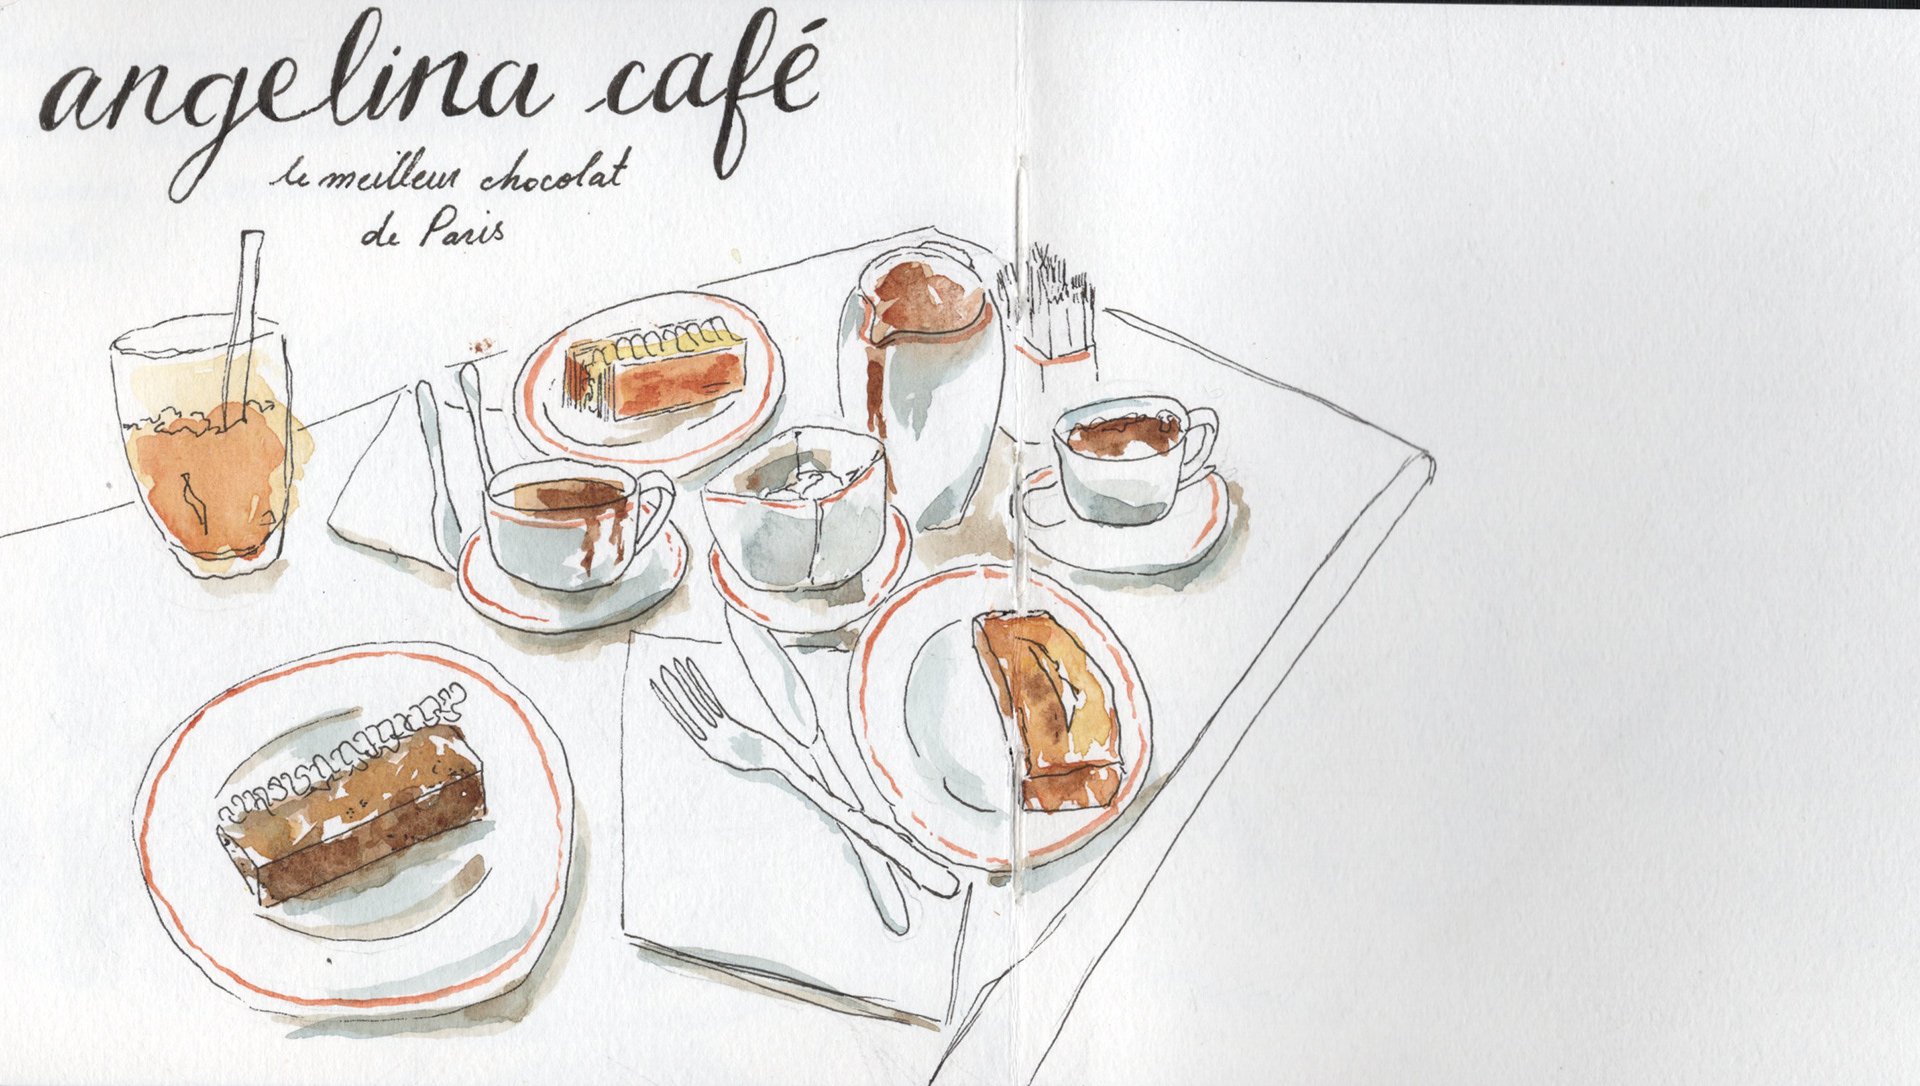 angelina café
le meilleur chocolat
de Paris